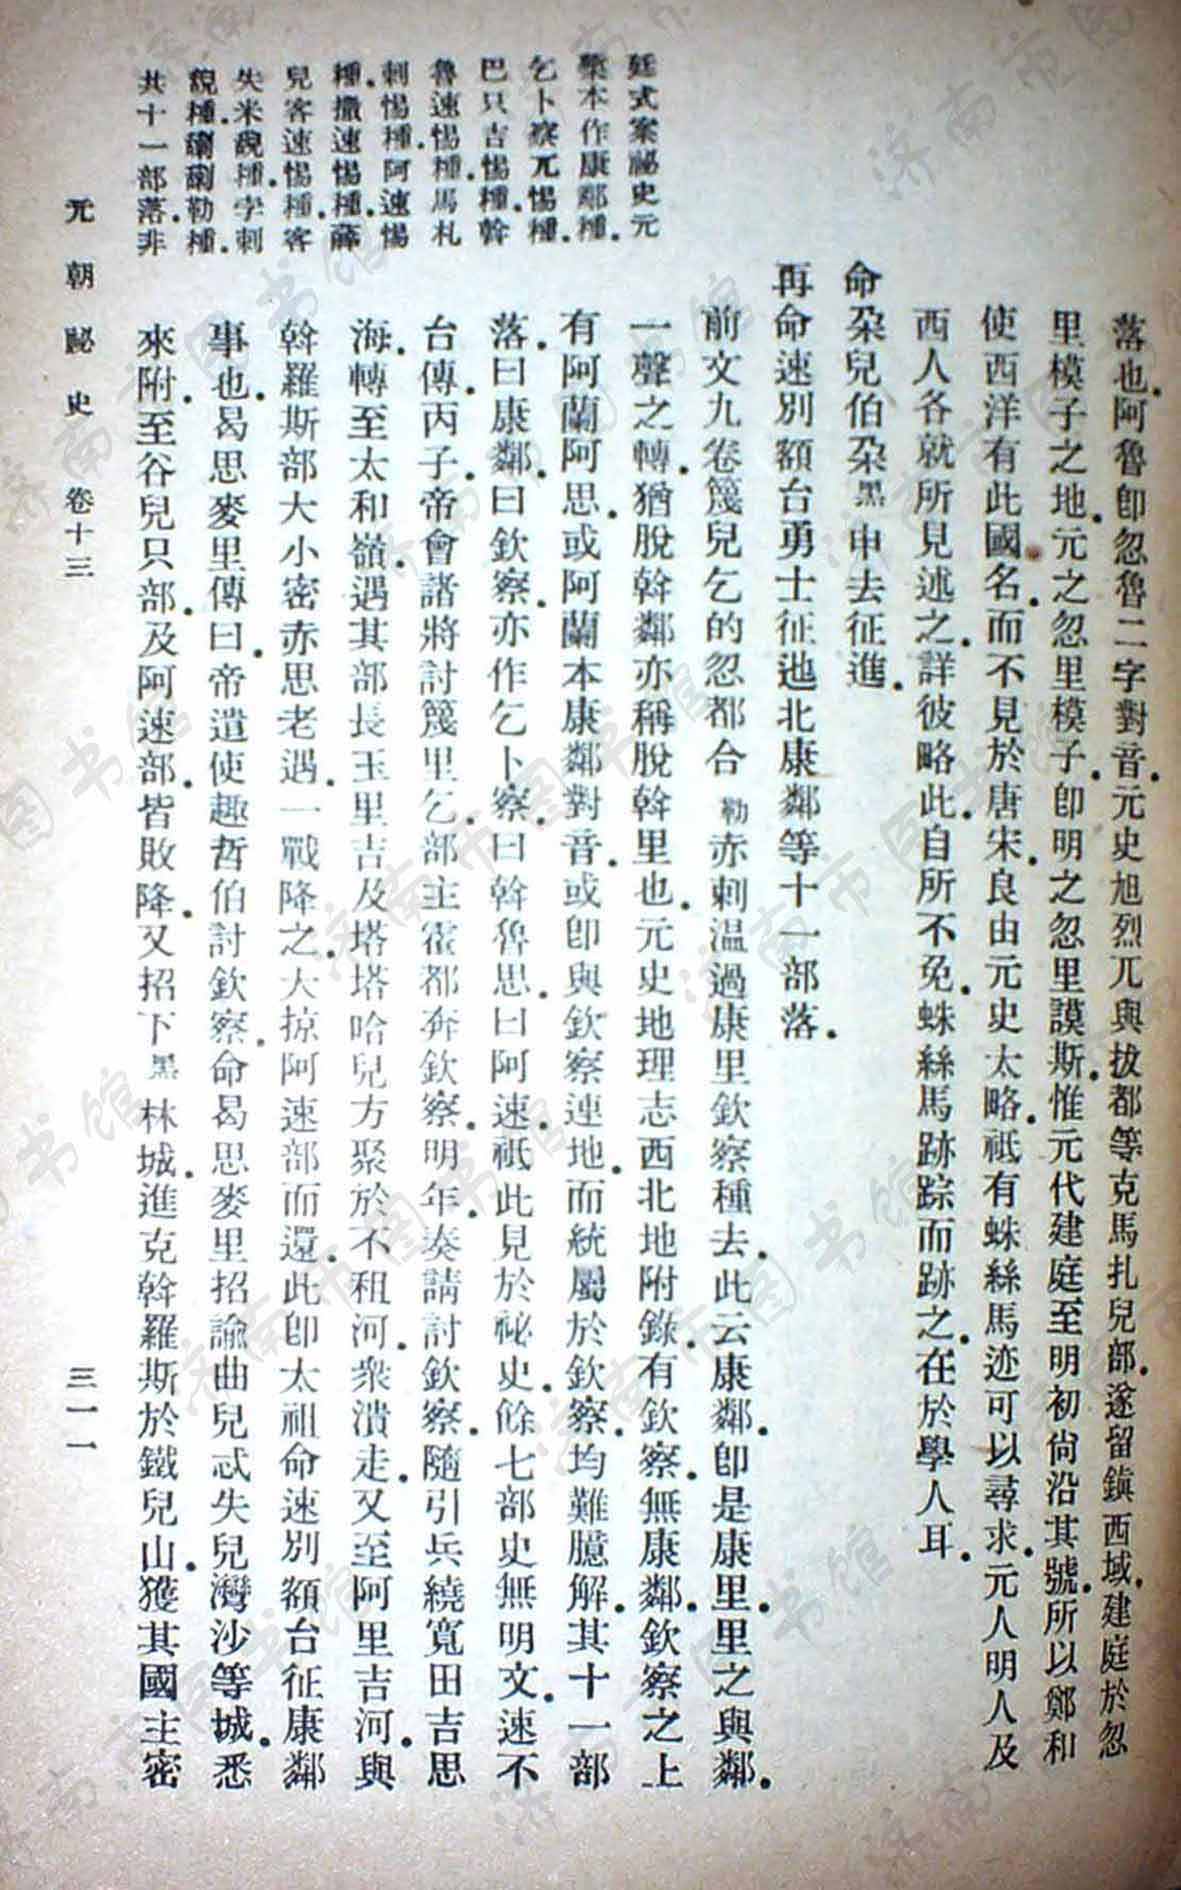 落也。阿魯卽忽魯二字對音。元史旭烈兀與拔都等克馬扎兒部。遂留鎭西域。建庭於忽
里模子之地。元之忽里模子。卽明之忽里謨斯。惟元代建庭至明初尙沿其號。所以鄭和
使西洋有此國名。而不見於唐宋。良由元史太略。祇有蛛絲馬迹可以尋求。元人明人及
西人各就所見述之。詳彼略此。自所不免。蛛絲馬跡踪而跡之。在於學人耳。
命朶兒伯朶黑申去征進。
再命速別額台勇士征迤北康鄰等十一部落。
前文九卷篾兒乞的忽都合勒赤剌溫過康里欽察種去。此云康鄰。卽是康里。里之與鄰。
一聲之轉。猶脫斡鄰亦稱脫斡里也。元史地理志西北地附錄。有欽察。無康鄰。欽察之上
有阿蘭阿思。或阿蘭本康鄰對音。或卽與欽察連地。而統屬於欽察。均難臆解。其十一部
落。曰康鄰。曰欽察。亦作乞卜察。曰斡魯思。曰阿速。祇此見於祕史。餘七部史無明文。速不
台傳。丙子。帝會諸將討篾里乞。部主霍都奔欽察。明年。奏請討欽察。隨引兵繞寬田吉思
海。轉至太和嶺。遇其部長玉里吉及塔塔哈兒方聚於不租河。衆潰走。又至阿里吉河。與
斡羅斯部大小密赤思老遇。一戰降之。大掠阿速部而還。此卽太祖命速別額台征康鄰
事也。曷思麥里傳曰。帝遣使趣哲伯討欽察。命曷思麥里招諭曲兒忒失兒灣沙等城。悉
來附。至谷兒只部。及阿速部。皆敗降。又招下黑林城。進克斡羅斯於鐵兒山。獲其國主密
廷式案祕史元
槧本作康鄰種。
乞卜察兀惕種。
巴只吉惕種。斡
魯速惕種。馬札
剌惕種。阿速惕
種。撒速惕種。薛
兒客速惕種。客
失米種。孛剌
種。勒種。
共十一部落。非
元朝祕史 卷十三 三一一